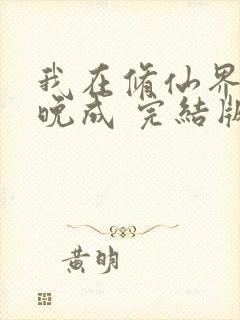 我在修仙界
晚成 完結版
黄明